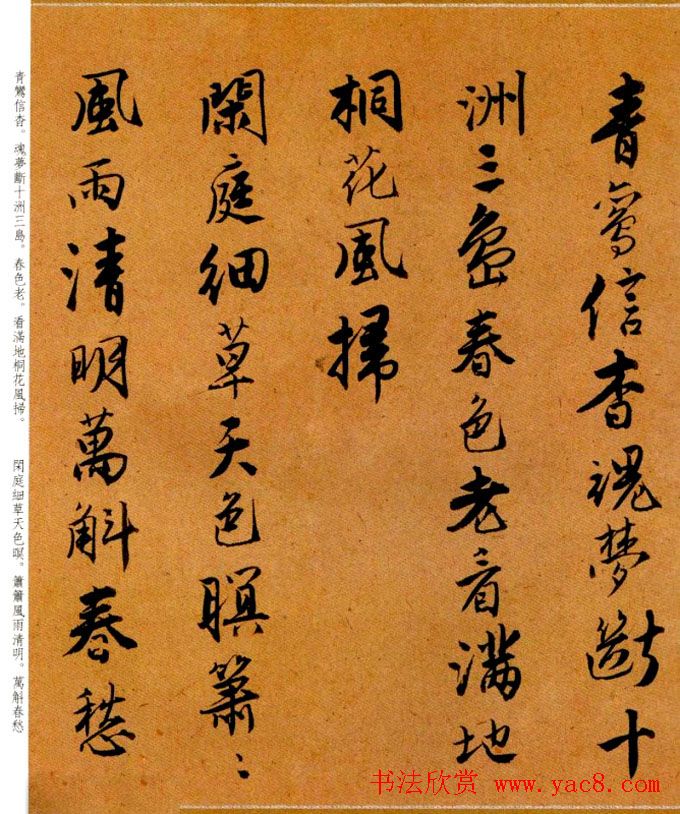 青鸞信杳魂夢斷十
洲三島春色老看滿地
桐花風掃
閑庭細草天色暝簫〻
風雨清明萬斛春愁
青鸞信杳。魂夢斷十洲三島。春色老。看滿地桐花風掃。　閑庭細草天色暝。簫簫風雨清明。萬斛春愁
书法欣赏 www.yac8.com